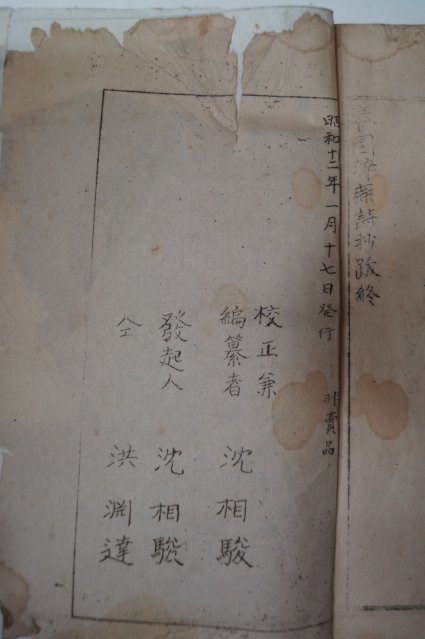 詩抄跋終
昭和十二年一月十七日発行 非賣品
校正兼
編纂者 沈相駿
發起人 沈相駿
仝 洪淵達